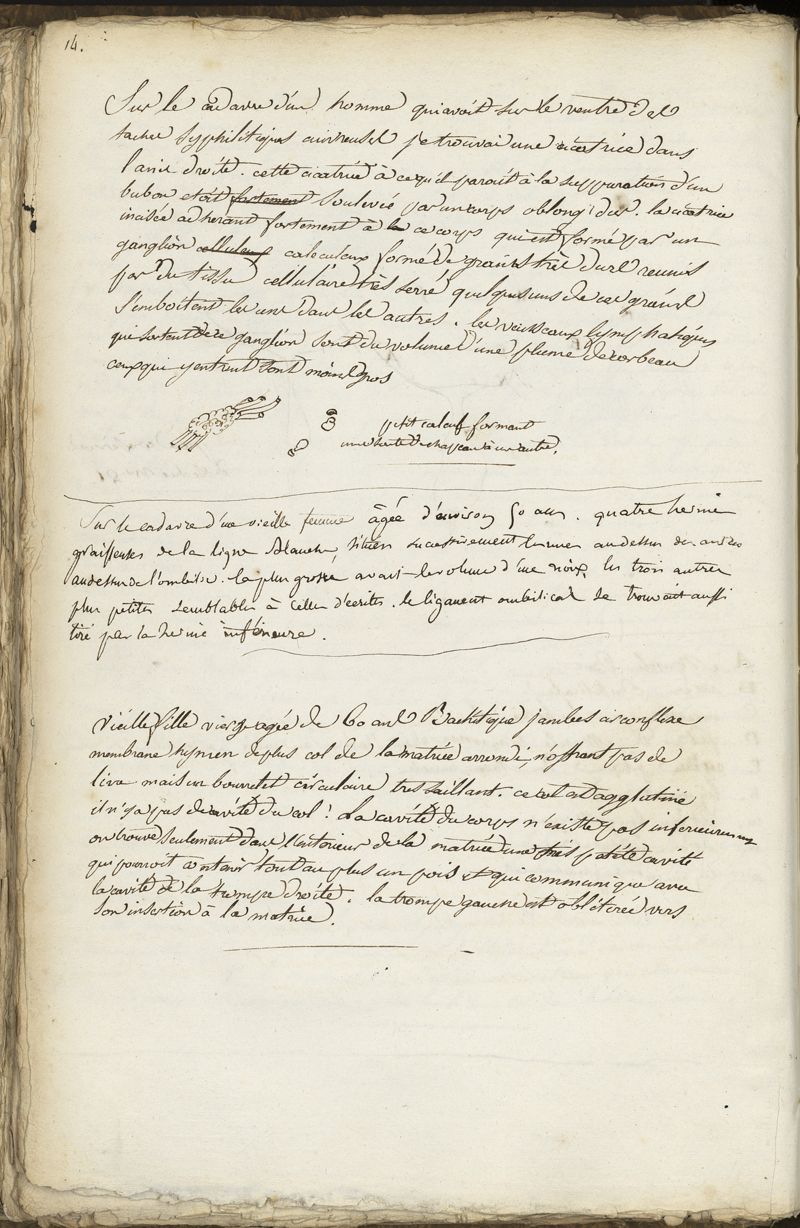 14.
Sur le cadavre d'un homme qui avoit sur le ventre des
taches syphilitiques cuivreuses je trouvai une cicatrice dans
l'aine droite. cette cicatrice à ce qu'il paroit à la suppuration d'un
bubon etoit fortement soulevée par un corps oblong dur. la cicatrice
incisée adherant fortement à ce corps qui est formé par un
ganglion celluleux calculeux formé de grains très durs reunis
par du tissu cellulaire très serré quelques uns de ces grains
s'emboitent les uns dans les autres. les vaisseaux lymphatiques
qui sortent de ce ganglion sont du volume d'une plume de corbeau
ceux qui y entrent sont moins gros
petit calcul formant
une sorte de chapeau à un autre.
Sur le cadavre d'une vieille femme âgée d'environ 50 ans. quatre hernies
graisseuses de la ligne blanche, situées successivement les unes au dessus des autres
au dessus de l'ombilic. la plus grosse avait le volume d'une noix, les trois autres
plus petites semblables à celles décrites. le ligament ombilical se trouvait aussi
tiré par la hernie inférieure.
Vieille fille vierge agée de 60 ans Rachitique jambes circonflexe
membrane hymen de plus col de la matrice arrondi, n'offrant pas de
livre mais un bourrelet circulaire tres saillant. ce col est agglutiné
il n'y a pas de cavité du col! La cavité du corps n'existe pas inferieurement
on trouve seulement dans l'interieur de la matrice une très petite cavité
qui pourroit contenir tout au plus un pois et qui communique avec
la cavité de la trompe droite. la trompe gauche est oblitérée vers
son insertion à la matrice.